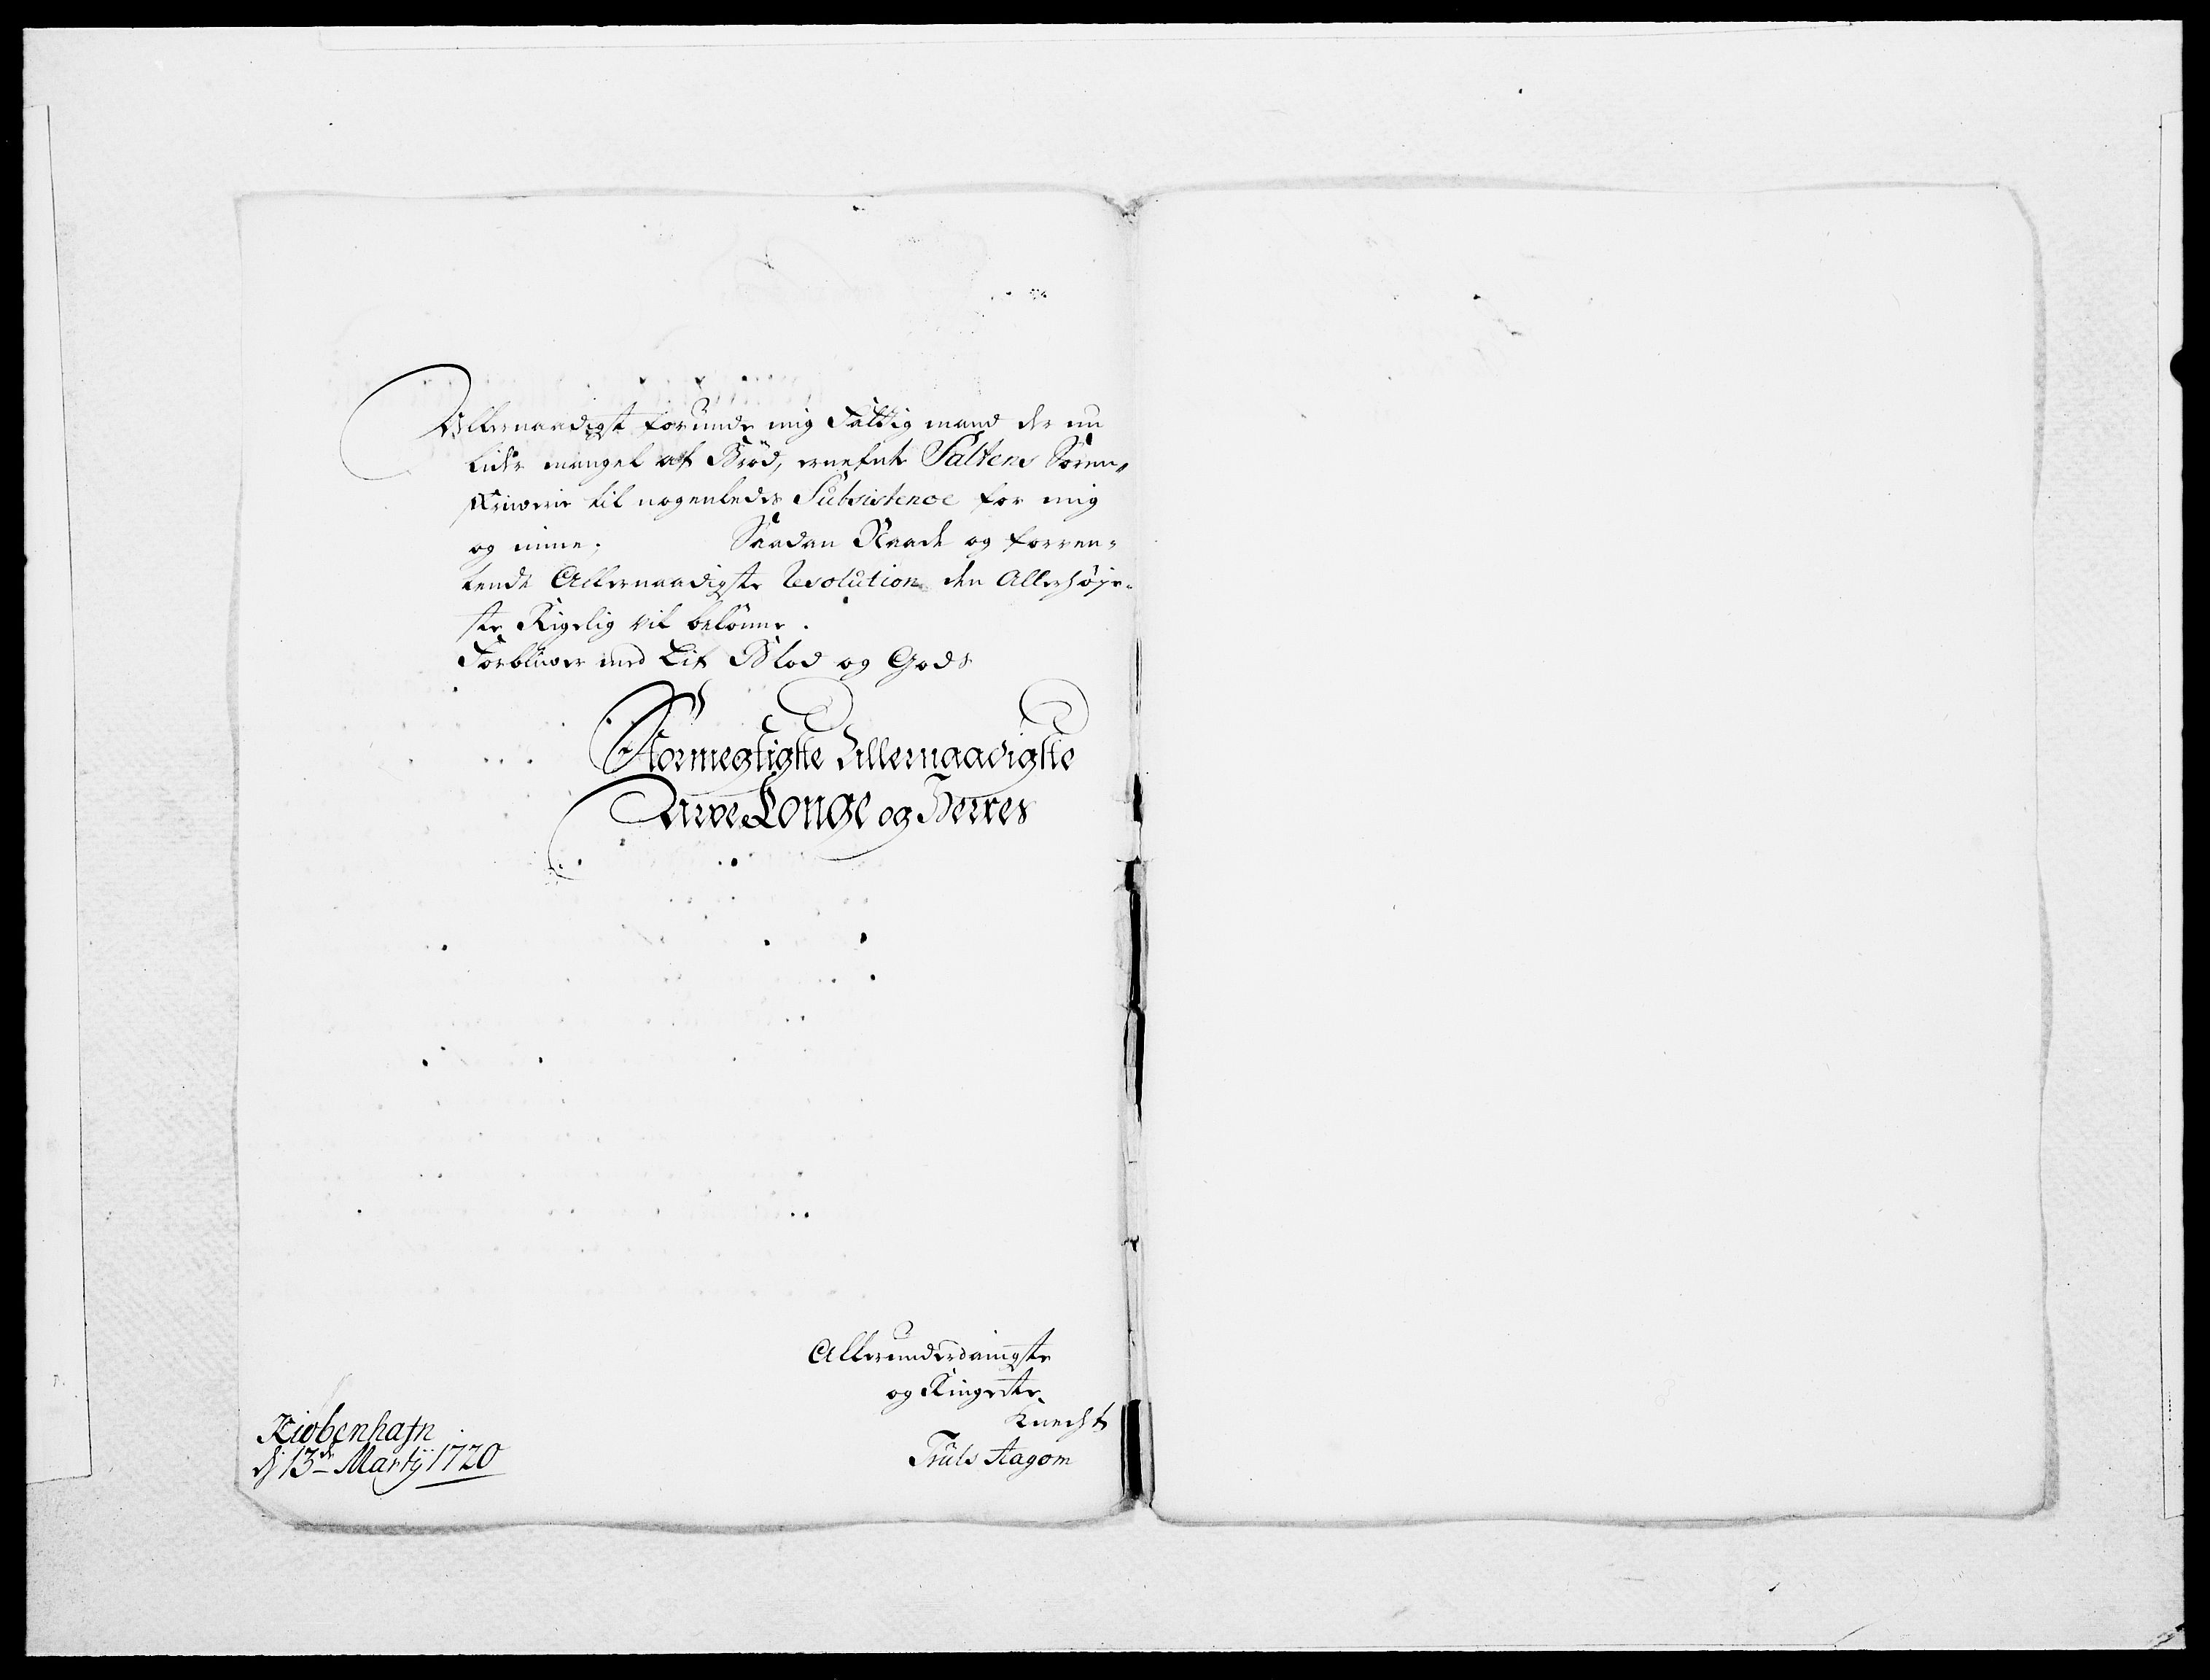 Allernaadigst forunde mig Fattig mand der nu
lider mangel af Brød, ermelte Saltens Soren-
skriverie til nogenledes Subsistence for mig
og mine; Saadan Naade og forven-
tende Allernaadigste Resolution den Allerhøje-
ste Rigelig vil belønne.
Forbliver med Lif Blod og Gods
Stormegtigste Allernaadigste
Arve Konge og Herres
Allerunderdanigste
og Ringeste
Knecht
Truls Aagom
Kiøbenhafn
d 13de Martij 1720